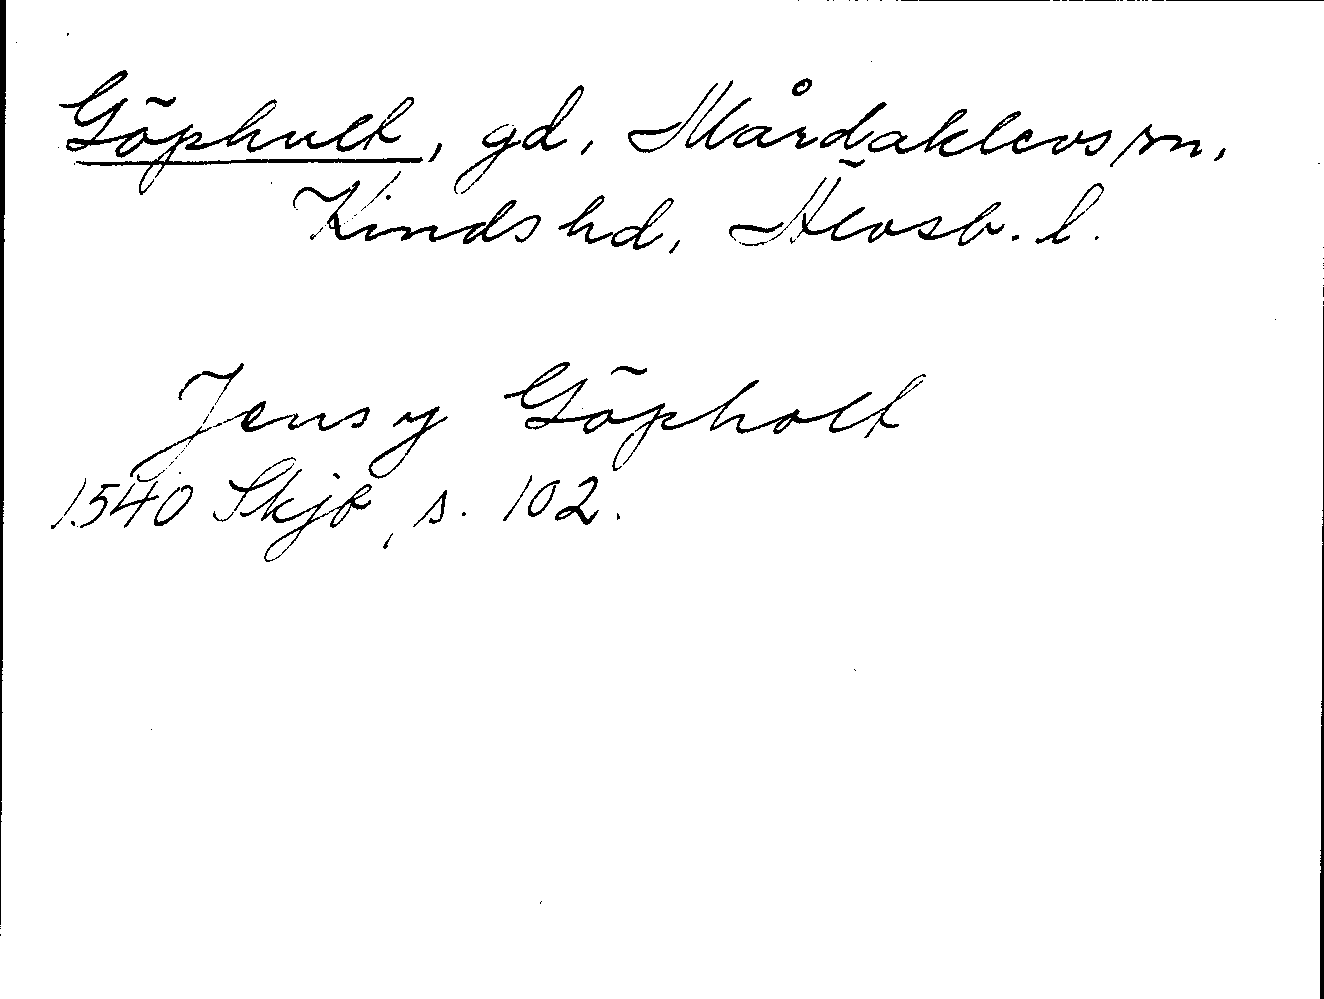 Göphult, gd, Mårdaklevs sn,
Kinds hd, Älvsb. l.
Jens y Göpholt
1540 Skjb, s. 102.